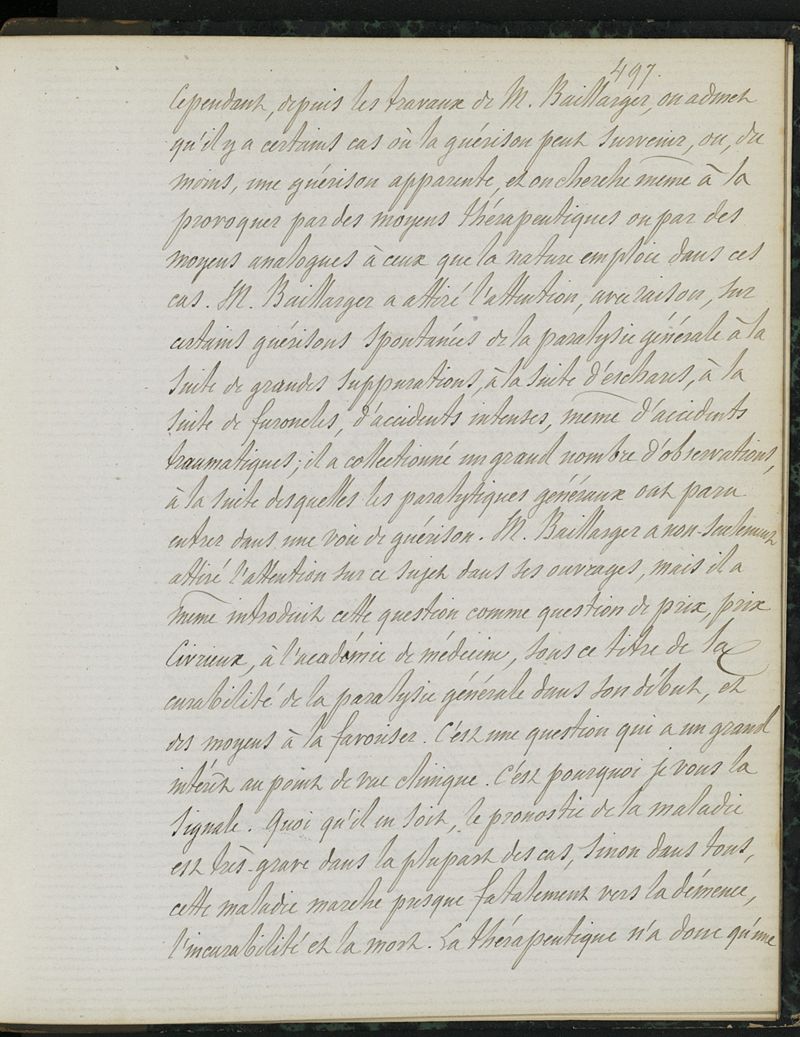 497.
Cependant, depuis les travaux de M. Baillarger, on admet
qu'il y a certains cas où la guérison peut survenir, ou, du
moins, une guérison apparente, et on cherche même à la
provoquer par des moyens thérapeutiques ou par des
moyens analogues à ceux que la nature emploie dans ces
cas. M. Baillarger a attiré l'attention, avec raison, sur
certains guérisons spontanées de la paralysie générale à la
suite de grandes suppurations, à la suite d'eschares, à la
suite de furoncles, d'accidents intenses, même d'accidents
traumatiques; il a collectionné un grand nombre d'observations,
à la suite desquelles les paralytiques généraux ont paru
entrer dans une voie de guérison. M. Baillarger a non-seulement
attiré l'attention sur ce sujet dans ses ouvrages, mais il a
même introduit cette question comme question de prix, prix
Civrieux, à l'académie de médecine, sous ce titre de la
curabilité de la paralysie générale dans son début, et
des moyens à la favoriser. C'est une question qui a un grand
intérêt au point de vue clinique. C'est pourquoi je vous la
signale. Quoi qu'il en soit, le pronostic de la maladie
est très-grave dans la plupart des cas, sinon dans tous,
cette maladie marche presque fatalement vers la démence,
l'incurabilité et la mort. La thérapeutique n'a donc qu'une